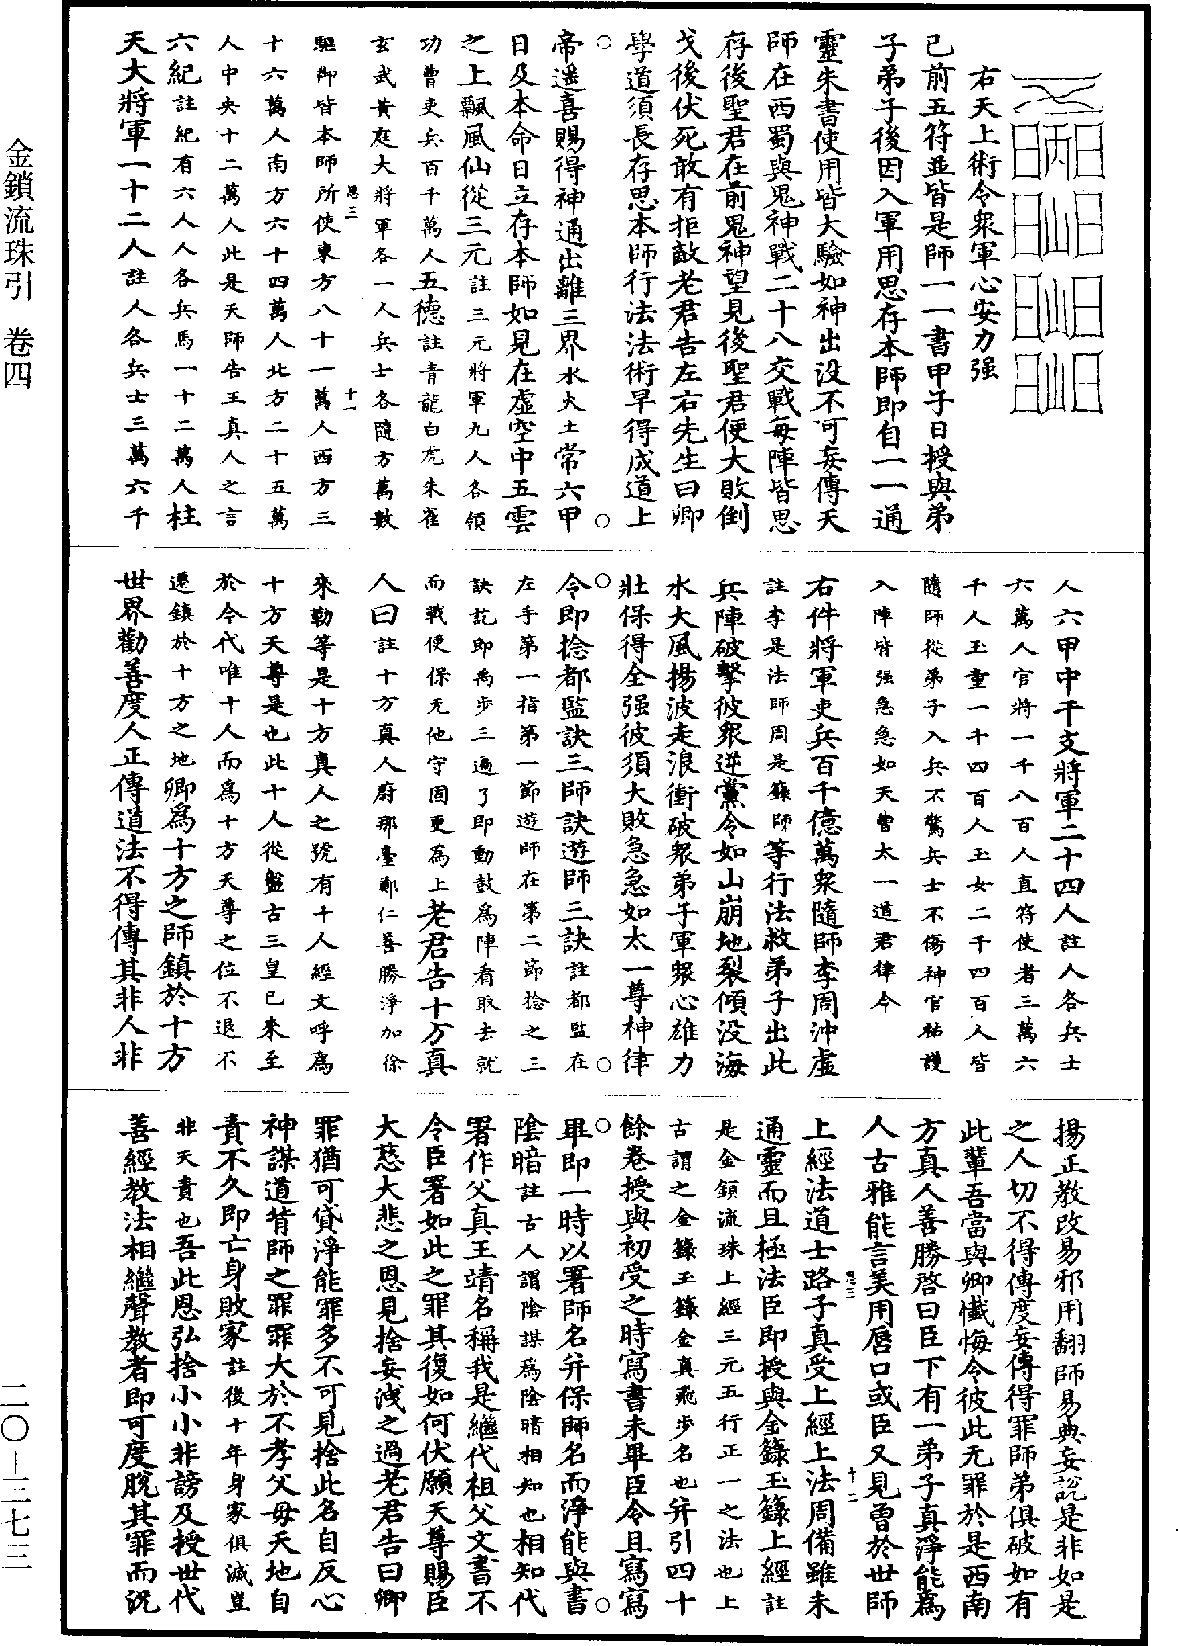 金鎖流珠引　卷四
右天上術令衆軍心安力强
已前五符並皆是師一一書甲子日授與弟
子弟子後因入軍用思存本師即自一一通
靈朱書使用皆大驗如神出没不可妄傳天
師在西蜀與鬼神戰二十八交戰每陣皆思
存後聖君在前鬼神望見後聖君便大敗倒
戈後伏死敢有拒敵老君告左右先生曰卿
學道須長存思本師行法法術早得成道上
帝遥喜賜得神通出離三界水火土常六甲
日及本命日立存本師如見在虚空中五雲
之上飄風仙從三元註三元將軍九人各領
功曹吏兵百千萬人五德註青龍白虎朱雀
玄武黄庭大將軍各一人兵士各隨方萬數
驅御皆本師所使東方八十一萬人西方三
十六萬人南方六十四萬人北方二十五萬
人中央十二萬人此是天師告王真人之言
六紀註紀有六人人各兵馬一十二萬人柱
天大將軍一十二人註人各兵士三萬六千
人六甲中干支將軍二十四人註人各兵士
六萬人官將一千八百人直符使者三萬六
千人玉童一千四百人玉女二千四百人皆
隨師從弟子入兵不驚兵士不傷神官祐護
入陣皆强急急如天曹太一道君律令
右件將軍吏兵百千億萬衆隨師李周沖虚
註李是法師周是籙師等行法救弟子出此
兵陣破擊彼衆逆黨令如山崩地裂傾没海
水大風揚波走浪衝破衆弟子軍衆心雄力
壯保得全强彼須大敗急急如太一尊神律
令即捻都監訣三師訣遊師三訣註都監在
左手第一指第一節遊師在第二節捻之三
訣訖即禹步三遍了即動鼓爲陣看取去就
而戰便保无他守固更為上老君告十方真
人曰註十方真人蔚那臺鄭仁善勝淨加徐
來勒等是十方真人之號有千人經文呼爲
十方天尊是也此十人從盤古三皇已來至
於今代唯十人而爲十方天尊之位不退不
遷鎮於十方之地卿爲十方之師鎮於十方
世界勸善度人正傳道法不得傳其非人非
揚正教改易邪用翻師易典妄説是非如是
之人切不得傳度妄傳得罪師弟俱破如有
此輩吾當與卿懺悔令彼此无罪於是西南
方真人善勝啓曰臣下有一弟子真淨能爲
人古雅能言美用唇口或臣又見曾於世師
上經法道士路子真受上經上法周備雖未
通靈而且極法臣即授與金籙玉籙上經註
是金鎖流珠上經三元五行正一之法也上
古謂之金籙玉籙金真飛步名也并引四十
餘卷授與初受之時寫書未畢臣令且寫寫
畢即一時以署師名并保師名而淨能與書
陰暗註古人謂陰謀爲陰暗相知也相知代
署作父真王靖名稱我是繼代祖父文書不
令臣署如此之罪其復如何伏願天尊賜臣
大慈大悲之恩見捨妄洩之過老君告曰卿
罪猶可貸淨能罪多不可見捨此名自反心
神謀道背師之罪罪大於不孝父母天地自
責不久即亡身敗家註後十年身家俱滅豈
非天責也吾此恩弘捨小小非謗及授世代
善經教法相繼聲教者即可度脱其罪而況
思三
十一
思三
十二
二〇-三七三